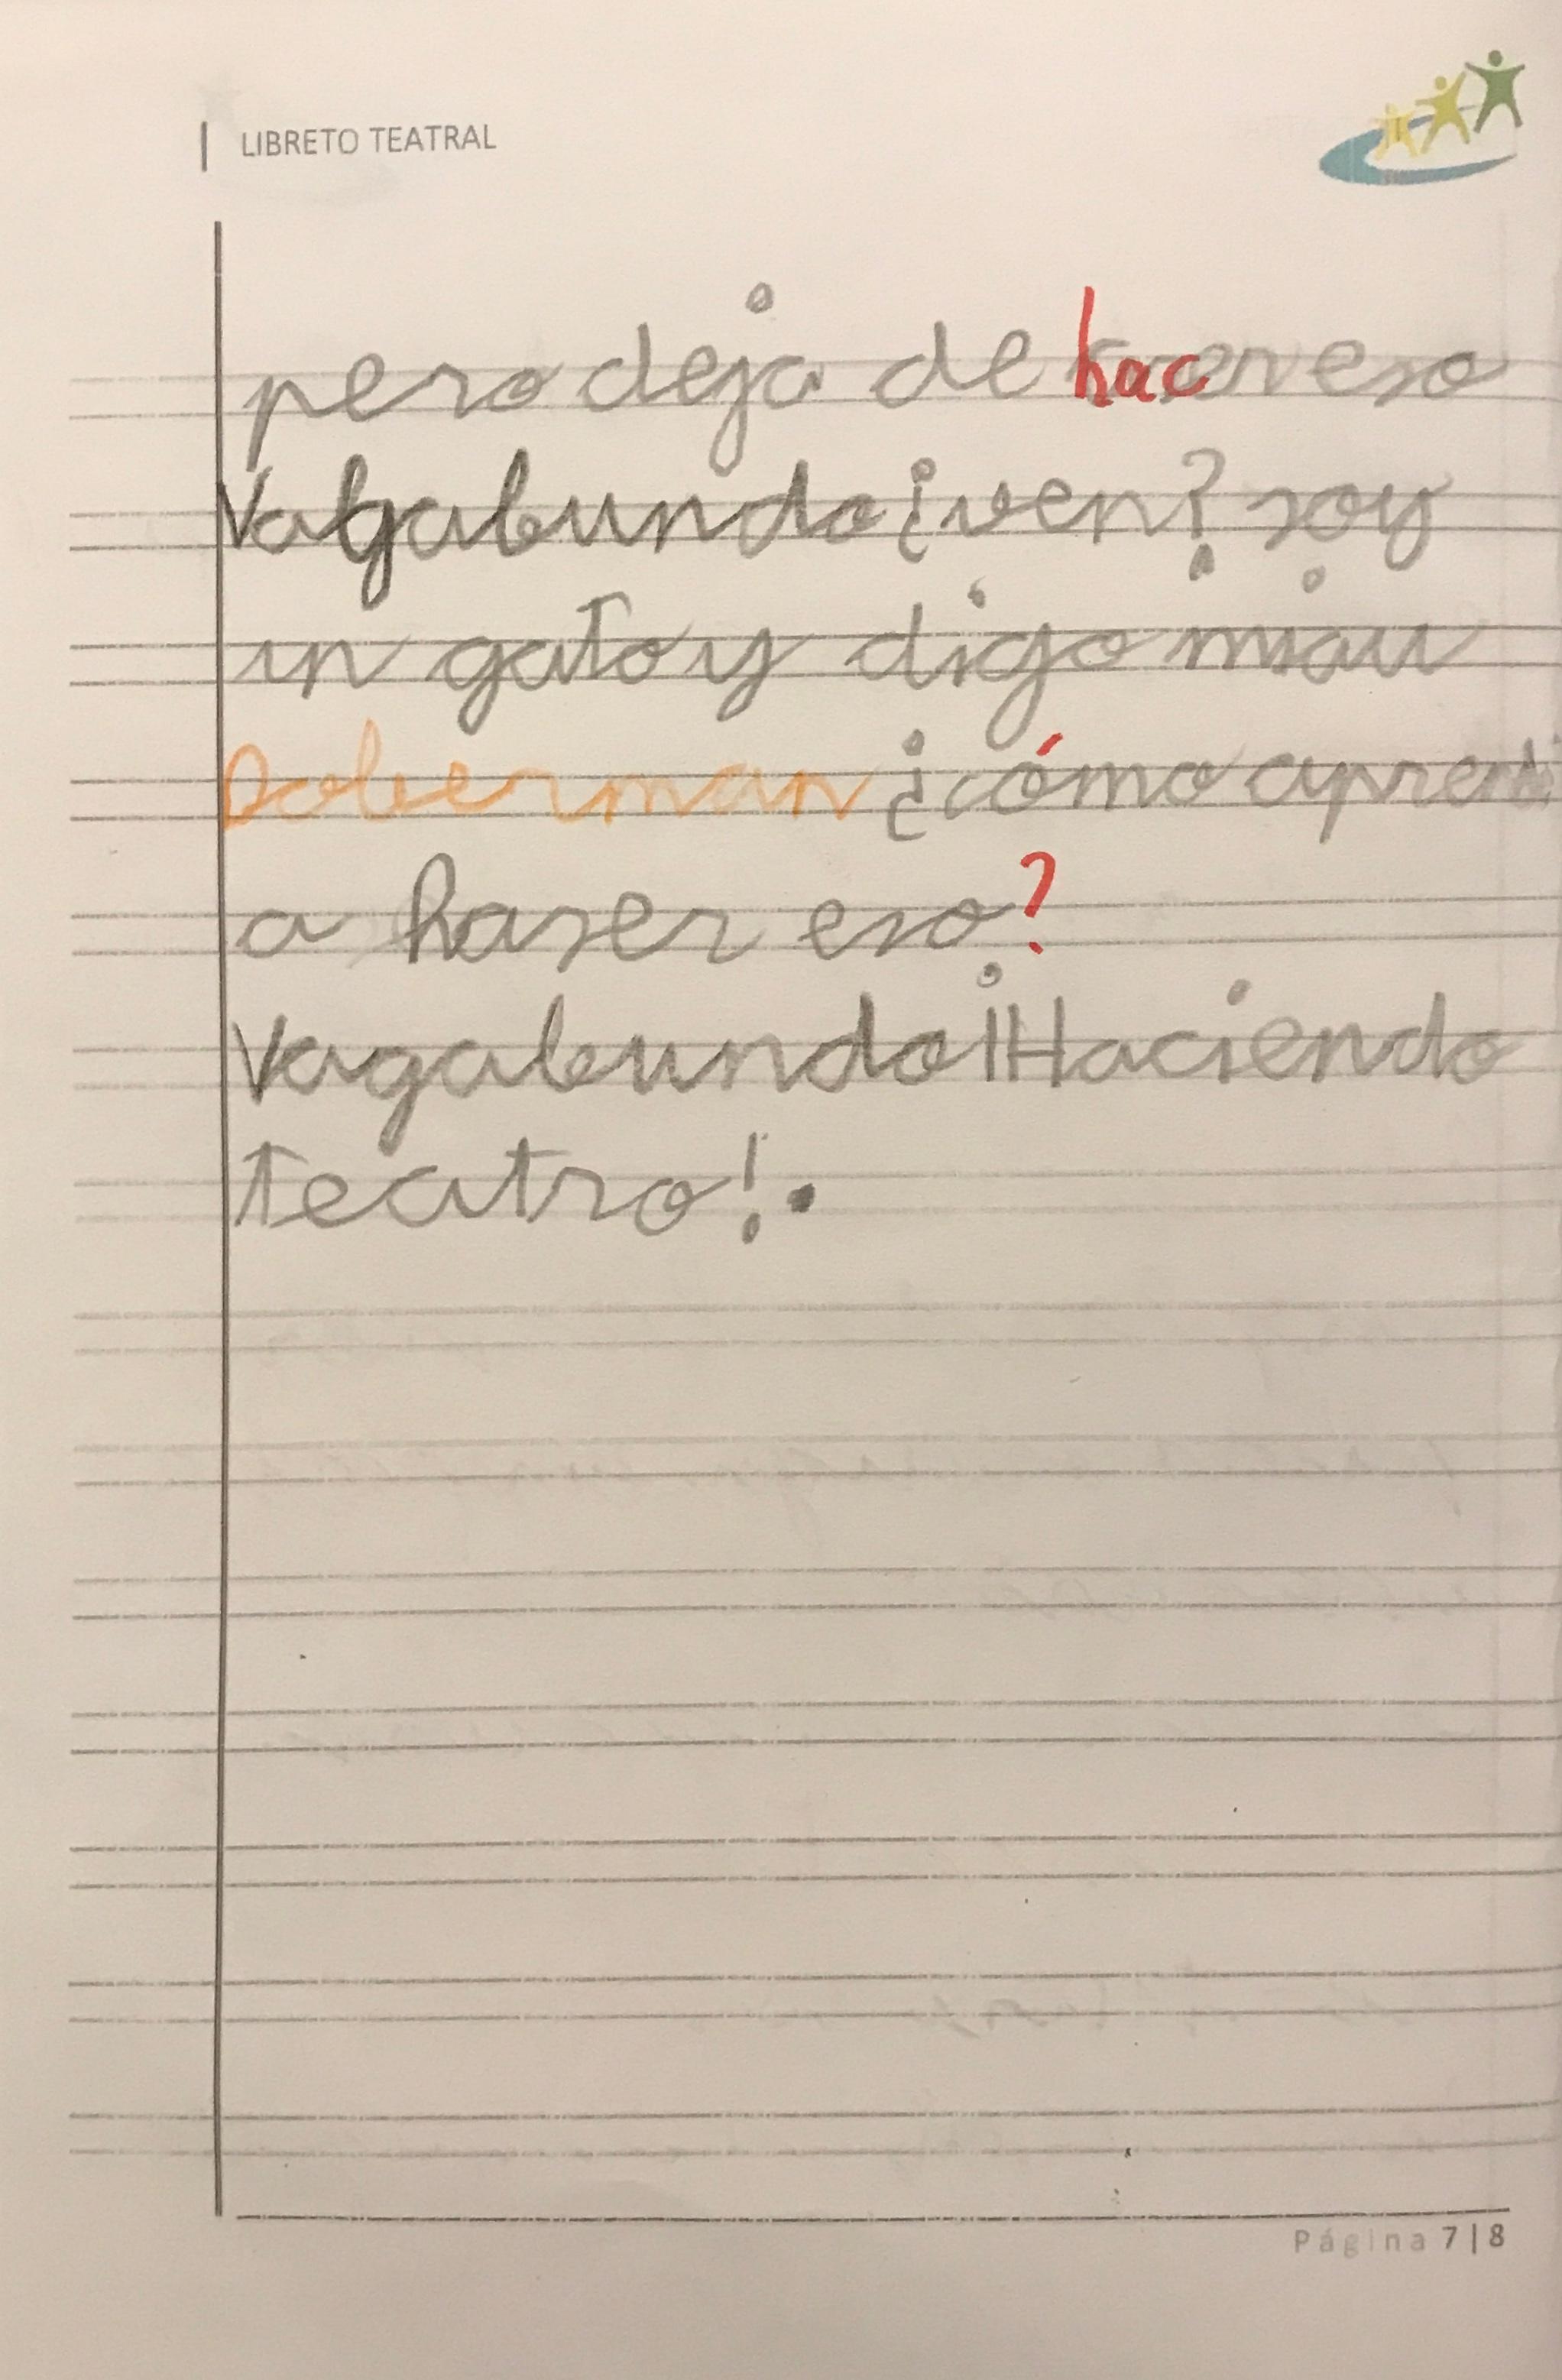 LIBRETO TEATRAL
pero deja de hacer eso
Vagabundo ¿ven? soy
un gato y digo miau
Doberman ¿cómo aprendi
a haser eso?
Vagabundo ¡Haciendo
teatro!.
Página 7 | 8